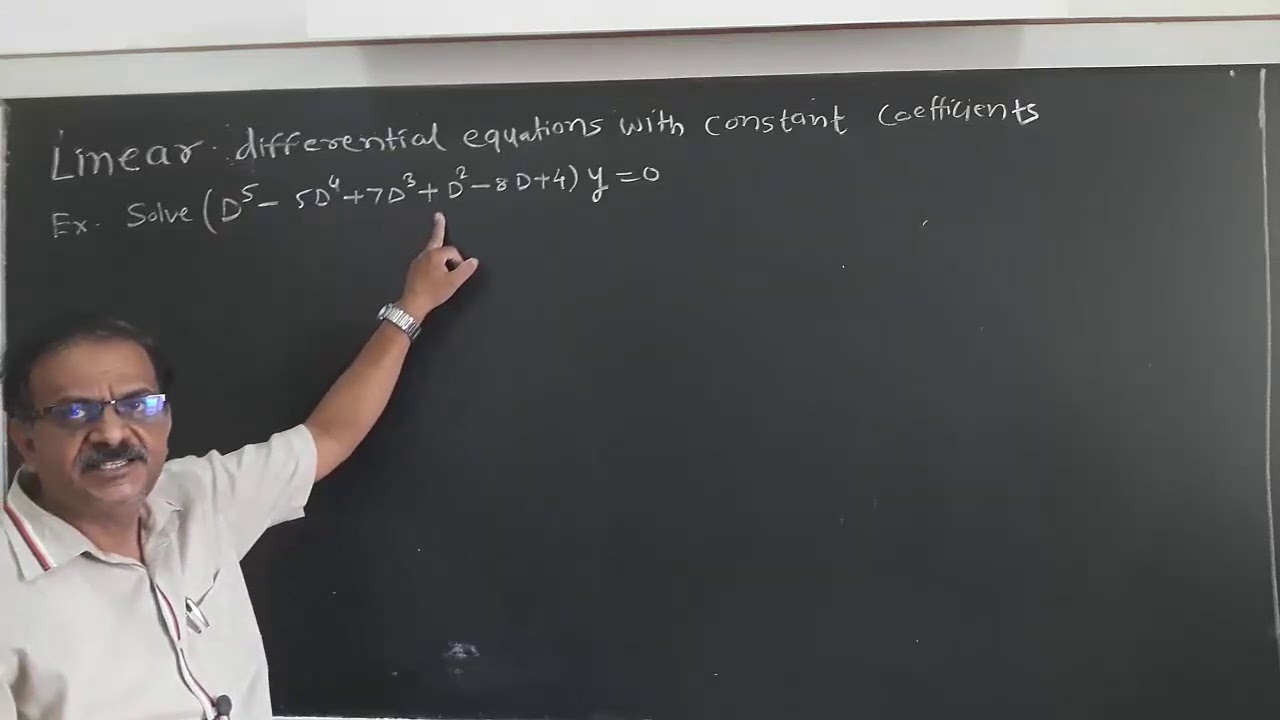 Linear differential equations with constant coefficients
Ex. Solve (D⁵ - 5D⁴ + 7D³ + D² - 8D + 4) y = 0